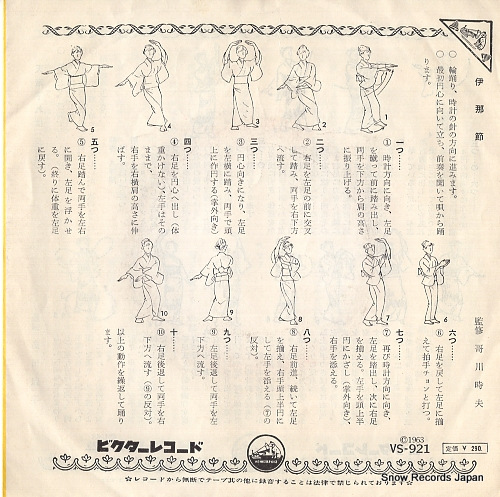 伊那節
監修 哥川時夫
○ 輪踊り、時計の針の方向に進みます。
○ 最初円心に向いて立ち、前奏を聞いて唄から踊
ります。
一つ……
① 時計方向に向き、左足
を蹴って前に踏み出し、
両手を下方から肩の高さ
に振り上げる。
二つ……
② 右足を左足の前に交叉
して踏み、両手を右下方
へ流す。
三つ……
③ 円心向きになり、左足
を左横に踏み、両手で頭
上に作円する（掌外向き）
四つ……
④ 右足を円心へ出し（体
重かけない）、左手はその
ままで、
右手を右横肩の高さに伸
ばす。
五つ……
⑤ 右足踏んで両手を左右
に開き、左足を浮かせ
る。（終りに体重を左足
に戻す）。
六つ……
⑥ 右足を戻して左足に揃
えて拍手チョンと打つ。
七つ……
⑦ 再び時計方向に向き、
左足を踏出し、次に右足
を揃える。左手を頭上半
円にかざし（掌外向き）、
右手を添える。
八つ……
⑧ 右足前進、続いて左足
を揃え、右手頭上半円に
して左手を添える（⑦の
反対）。
九つ……
⑨ 左足後退して両手を左
下方へ流す。
十……
⑩ 右足後退して両手を右
下方へ流す（⑨の反対）。
以上の動作を繰返して踊り
ます。
1
2
3
4
5
6
7
8
9
10
ビクターレコード
Ⓒ1963
VS-921
定価 ¥ 290.
☆レコードから無断でテープ其の他に録音することは法律で禁じられております☆
Snow Records Japan